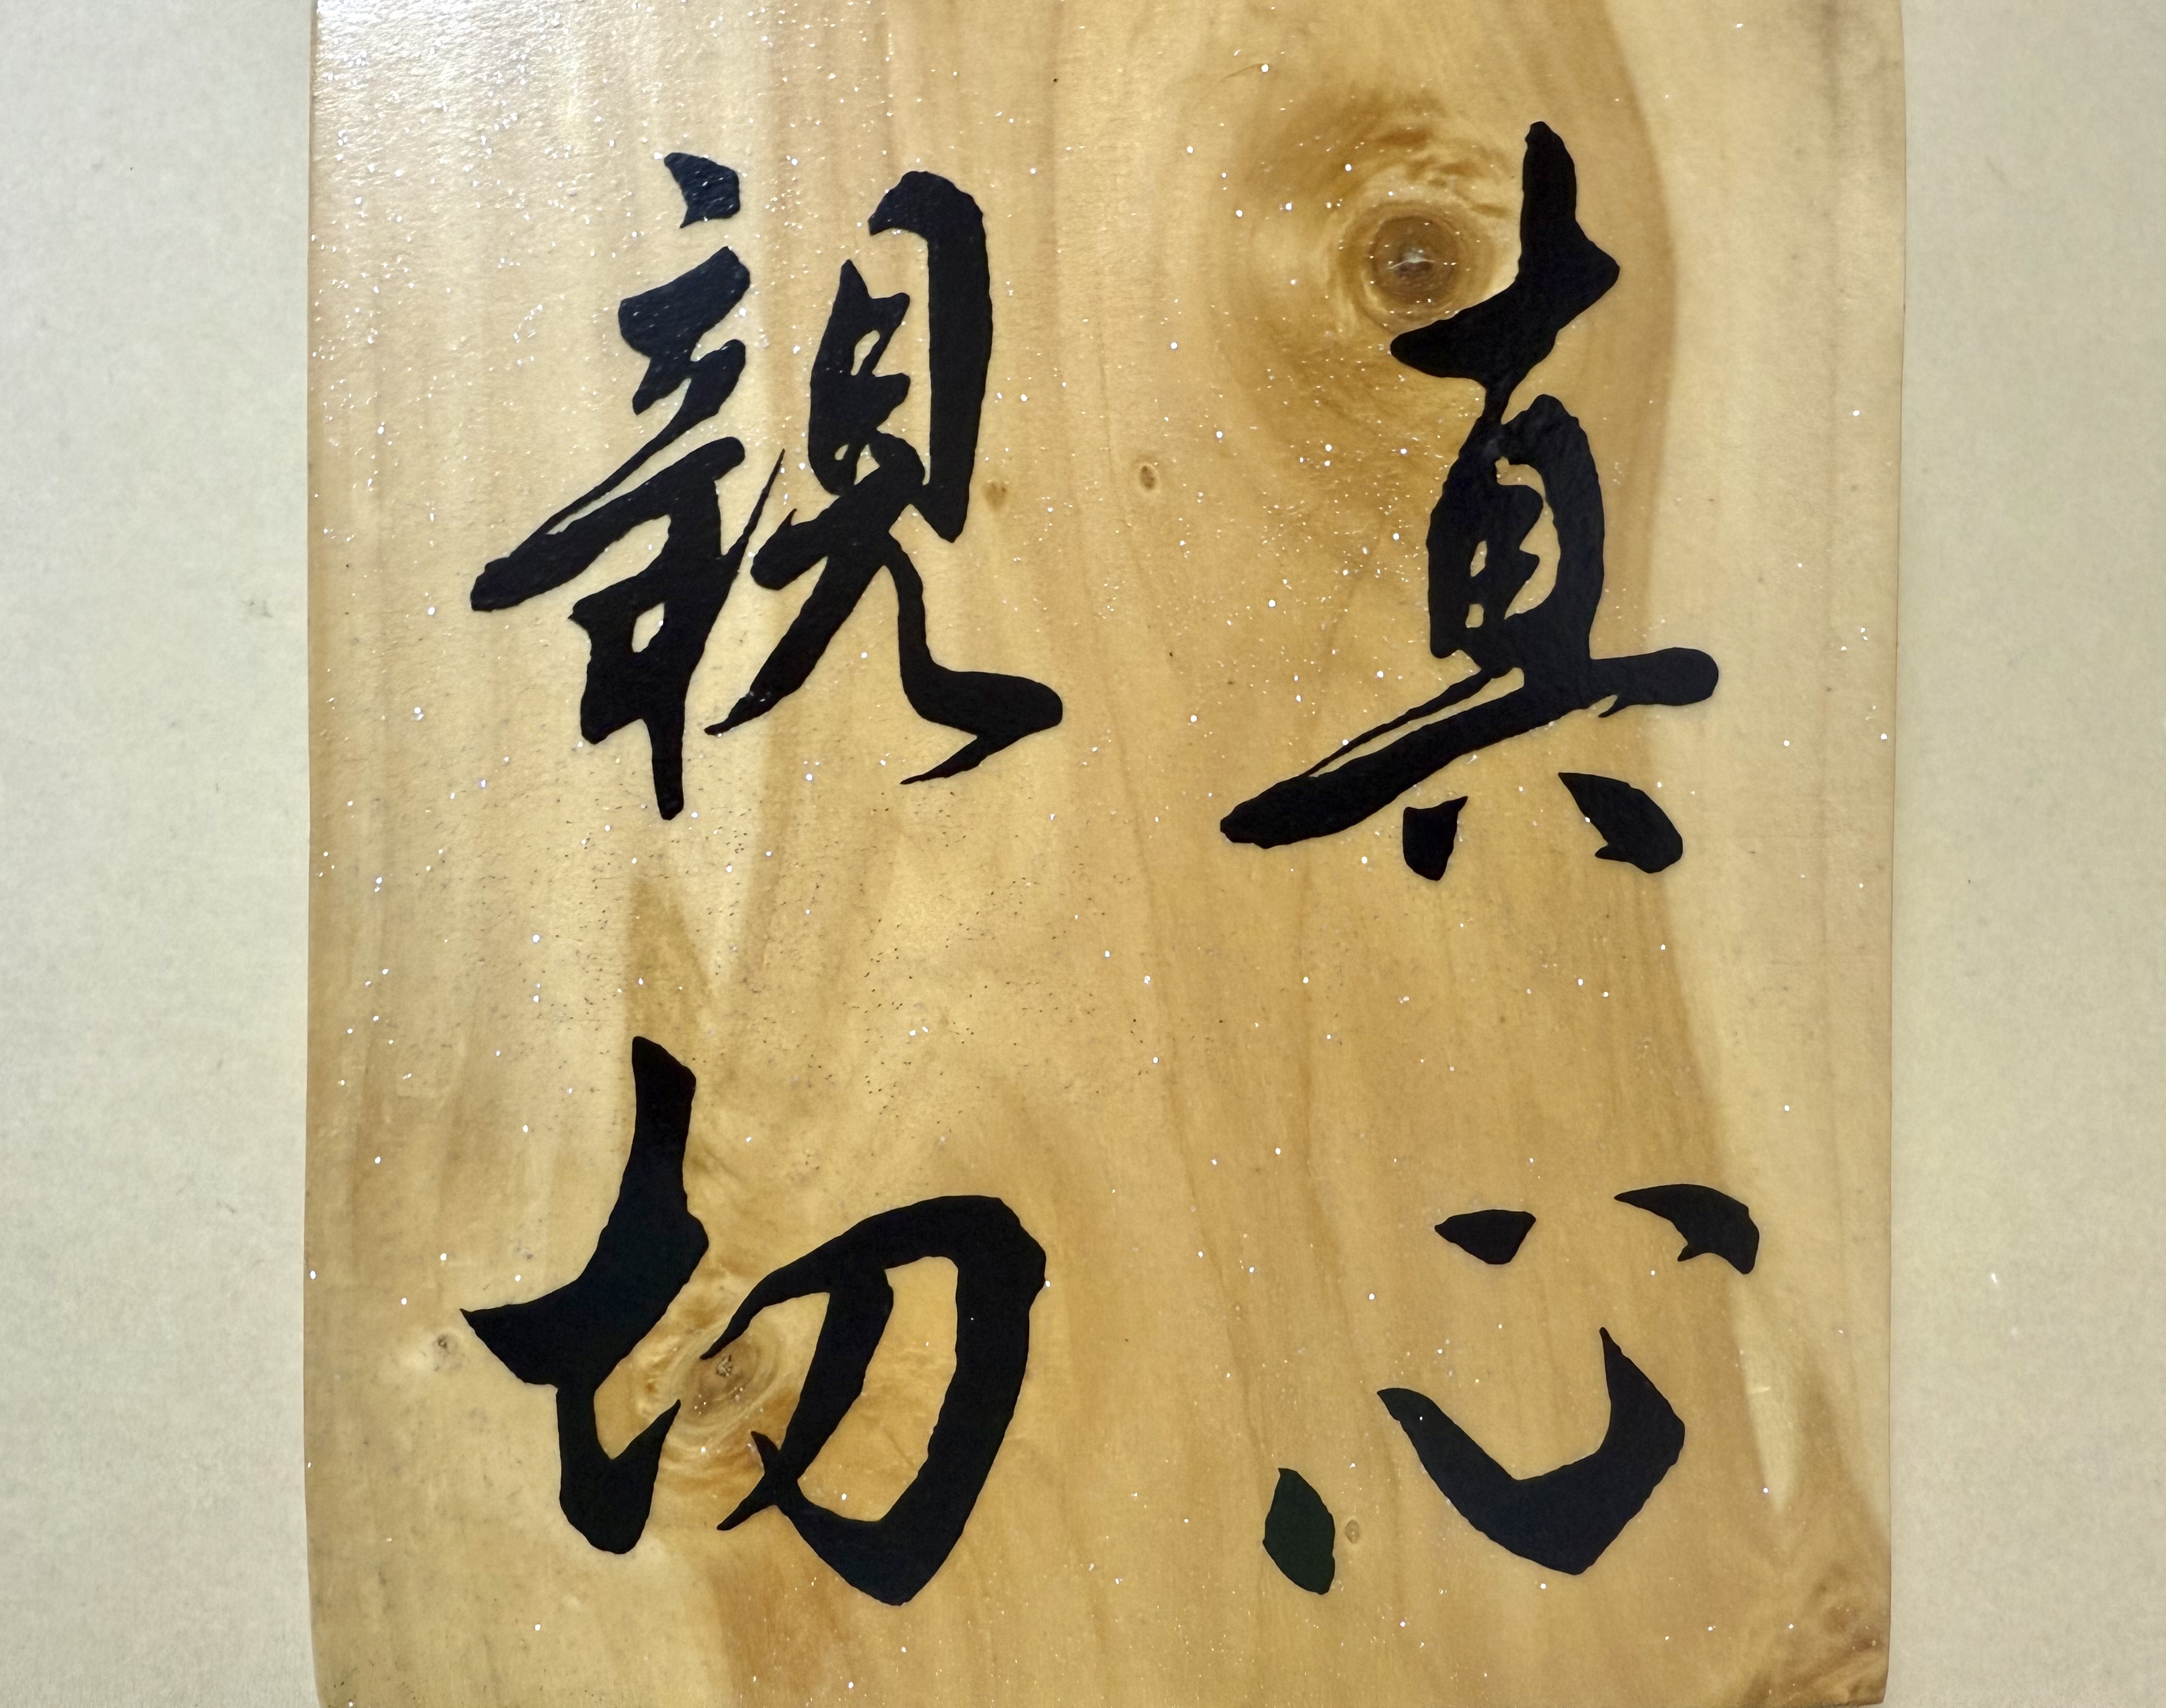 真心
親切